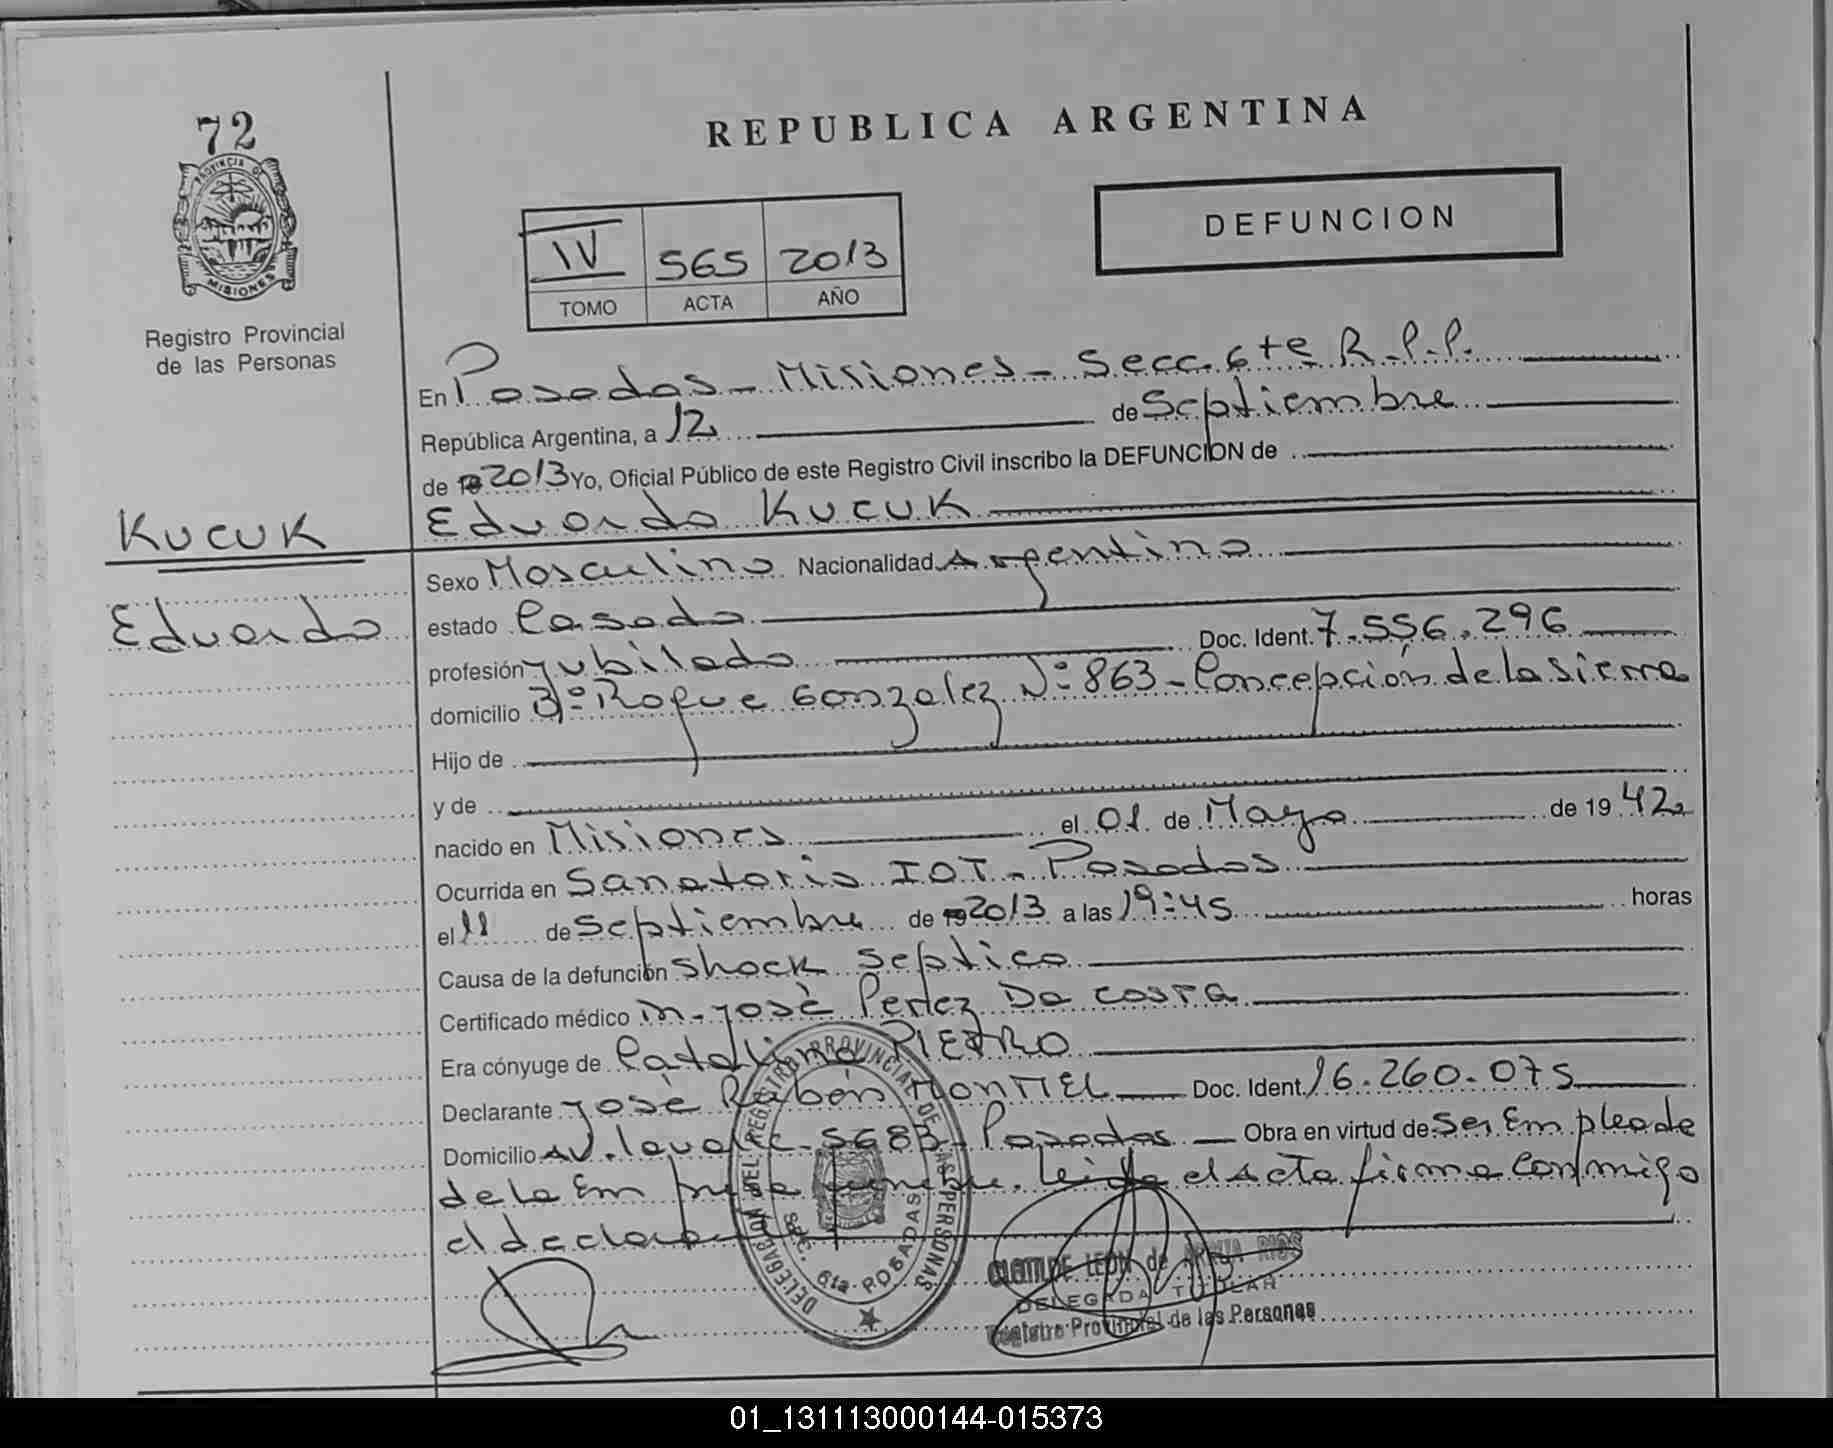 72
PROVINCIA DE
MISIONES
Registro Provincial
de las Personas
REPUBLICA ARGENTINA
DEFUNCION
IV 565 2013
TOMO ACTA AÑO
En Posadas - Misiones - Secc. 6te R.P.P.
República Argentina, a 12 de Septiembre
de 2013 Yo, Oficial Público de este Registro Civil inscribo la DEFUNCION de
KUCUK
Eduardo KUCUK
Eduardo
Sexo Masculino Nacionalidad Argentina
estado Casado
profesión Jubilado Doc. Ident. 7.556.296
domicilio Bº Roque Gonzalez Nº 863 - Concepción de la Sierra
Hijo de
y de
nacido en Misiones el 01 de Mayo de 1942
Ocurrida en Sanatorio IOT - Posadas
el 11 de Septiembre de 2013 a las 19:45 horas
Causa de la defunción Shock Septico
Certificado médico m. José Perez Da Costa
Era cónyuge de Catalina PIETRO
Declarante José Rubén MONTIEL Doc. Ident. 16.260.075
Domicilio Av. - Posadas Obra en virtud de Ser Empleado
de la Empresa funebre. Leida el Acta firma Conmigo
el declarante
DELEGACION DEL REGISTRO PROVINCIAL DE LAS PERSONAS
Secc. 6ta - POSADAS
CLOTILDE LEON de RIOS
DELEGADA TITULAR
Registro Provincial de las Personas
01_131113000144-015373